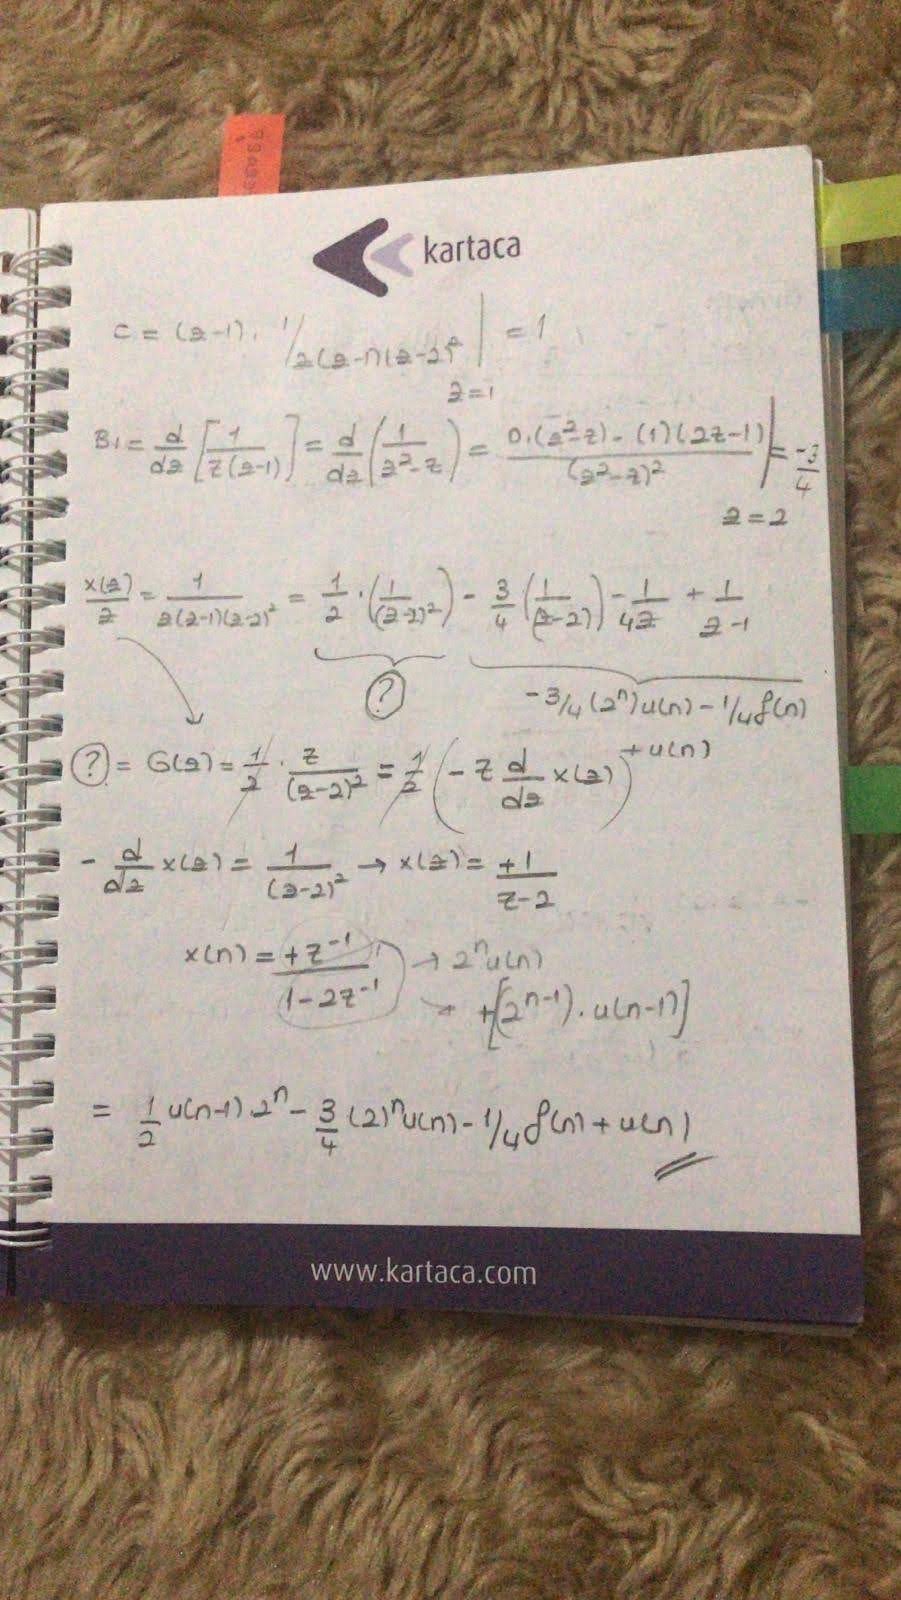 kartaca
c = (z-1). 1/z(z-1)(z-2)² | = 1
z=1
B₁ = d/dz [1/z(z-1)] = d/dz (1/z²-z) = 0.(z²-z) - (1)(2z-1)/(z²-z)² | = -3/4
z=2
x(z)/z = 1/z(z-1)(z-2)² = 1/2 . (1/(z-2)²) - 3/4 (1/(z-2)) - 1/4z + 1/z-1
? -3/4 (2ⁿ)u(n) - 1/4 δ(n)
+ u(n)
? = G(z) = 1/2 . z/(z-2)² = 1/2 (-z d/dz x(z))
- d/dz x(z) = 1/(z-2)² → x(z) = +1/z-2
x(n) = +z⁻¹/1-2z⁻¹ → 2ⁿu(n)
→ +[2ⁿ⁻¹).u(n-1)]
= 1/2 u(n-1).2ⁿ - 3/4 (2)ⁿu(n) - 1/4 δ(n) + u(n)
www.kartaca.com